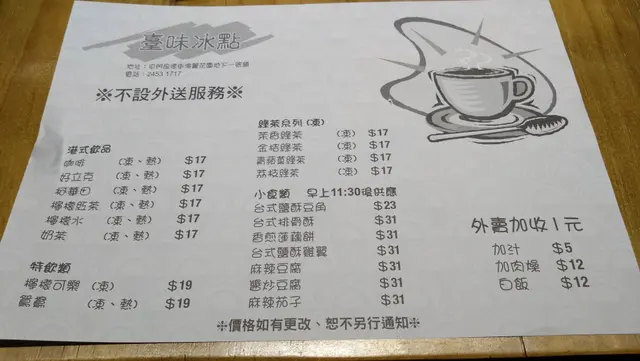 臺味冰點
電話：2453 1717
※不設外送服務※
港式飲品
咖啡 (凍、熱) $17
好立克 (凍、熱) $17
好華田 (凍、熱) $17
檸檬班茶 (凍、熱) $17
檸檬水 (凍、熱) $17
奶茶 (凍、熱) $17
特飲類
檸檬可樂 (凍) $19
鴛鴦 (凍、熱) $19
綠茶系列 (凍)
茉香綠茶 (凍) $17
金桔綠茶 (凍) $17
青蘋菓綠茶 (凍) $17
荔枝綠茶 (凍) $17
小食類 早上11:30後供應
台式鹽酥豆角 $23
台式排骨酥 $31
香煎蓮藕餅 $31
台式鹽酥雞翼 $31
麻辣豆腐 $31
醬炒豆腐 $31
麻辣茄子 $31
外賣加收1元
加汁 $5
加肉燥 $12
白飯 $12
※價格如有更改、恕不另行通知※